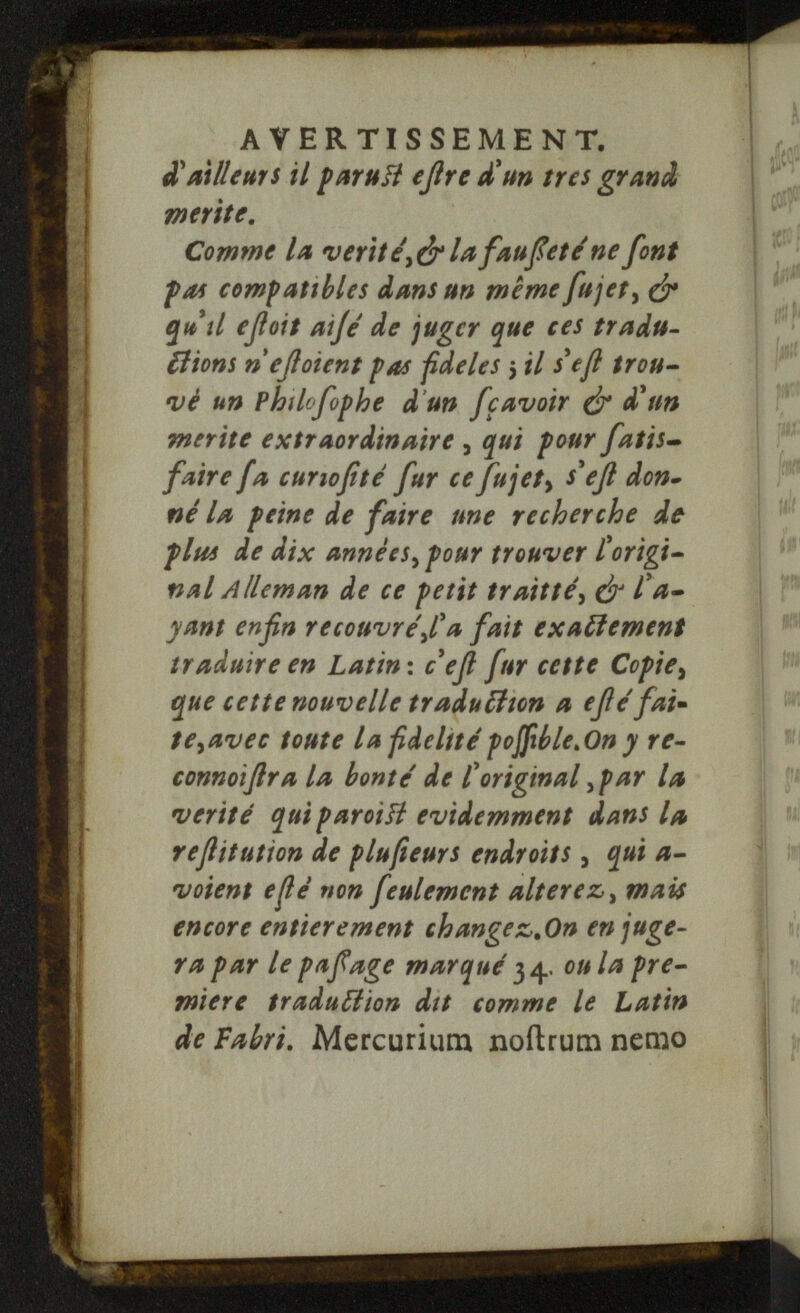 AVERTISSEMENT.
d'ailleurs il parust estre d'un tres grand
merite.
Comme la verité,& la fausseté ne sont
pas compatibles dans un même sujet, &
qu'il estoit aisé de juger que ces tradu-
ctions n'estoient pas fideles ; il s'est trou-
vé un Philosophe d'un sçavoir & d'un
merite extraordinaire , qui pour satis-
faire sa curiosité sur ce sujet, s'est don-
né la peine de faire une recherche de
plus de dix années, pour trouver l'origi-
nal Alleman de ce petit traitté, & l'a-
yant enfin recouvré,l'a fait exactement
traduire en Latin : c'est sur cette Copie,
que cette nouvelle traduction a esté fai-
te,avec toute la fidelité possible.On y re-
connoistra la bonté de l'original ,par la
verité qui paroist evidemment dans la
restitution de plusieurs endroits , qui a-
voient esté non seulement alterez, mais
encore entierement changez.On en juge-
ra par le passage marqué 34. ou la pre-
miere traduction dit comme le Latin
de Fabri. Mercurium nostrum nemo